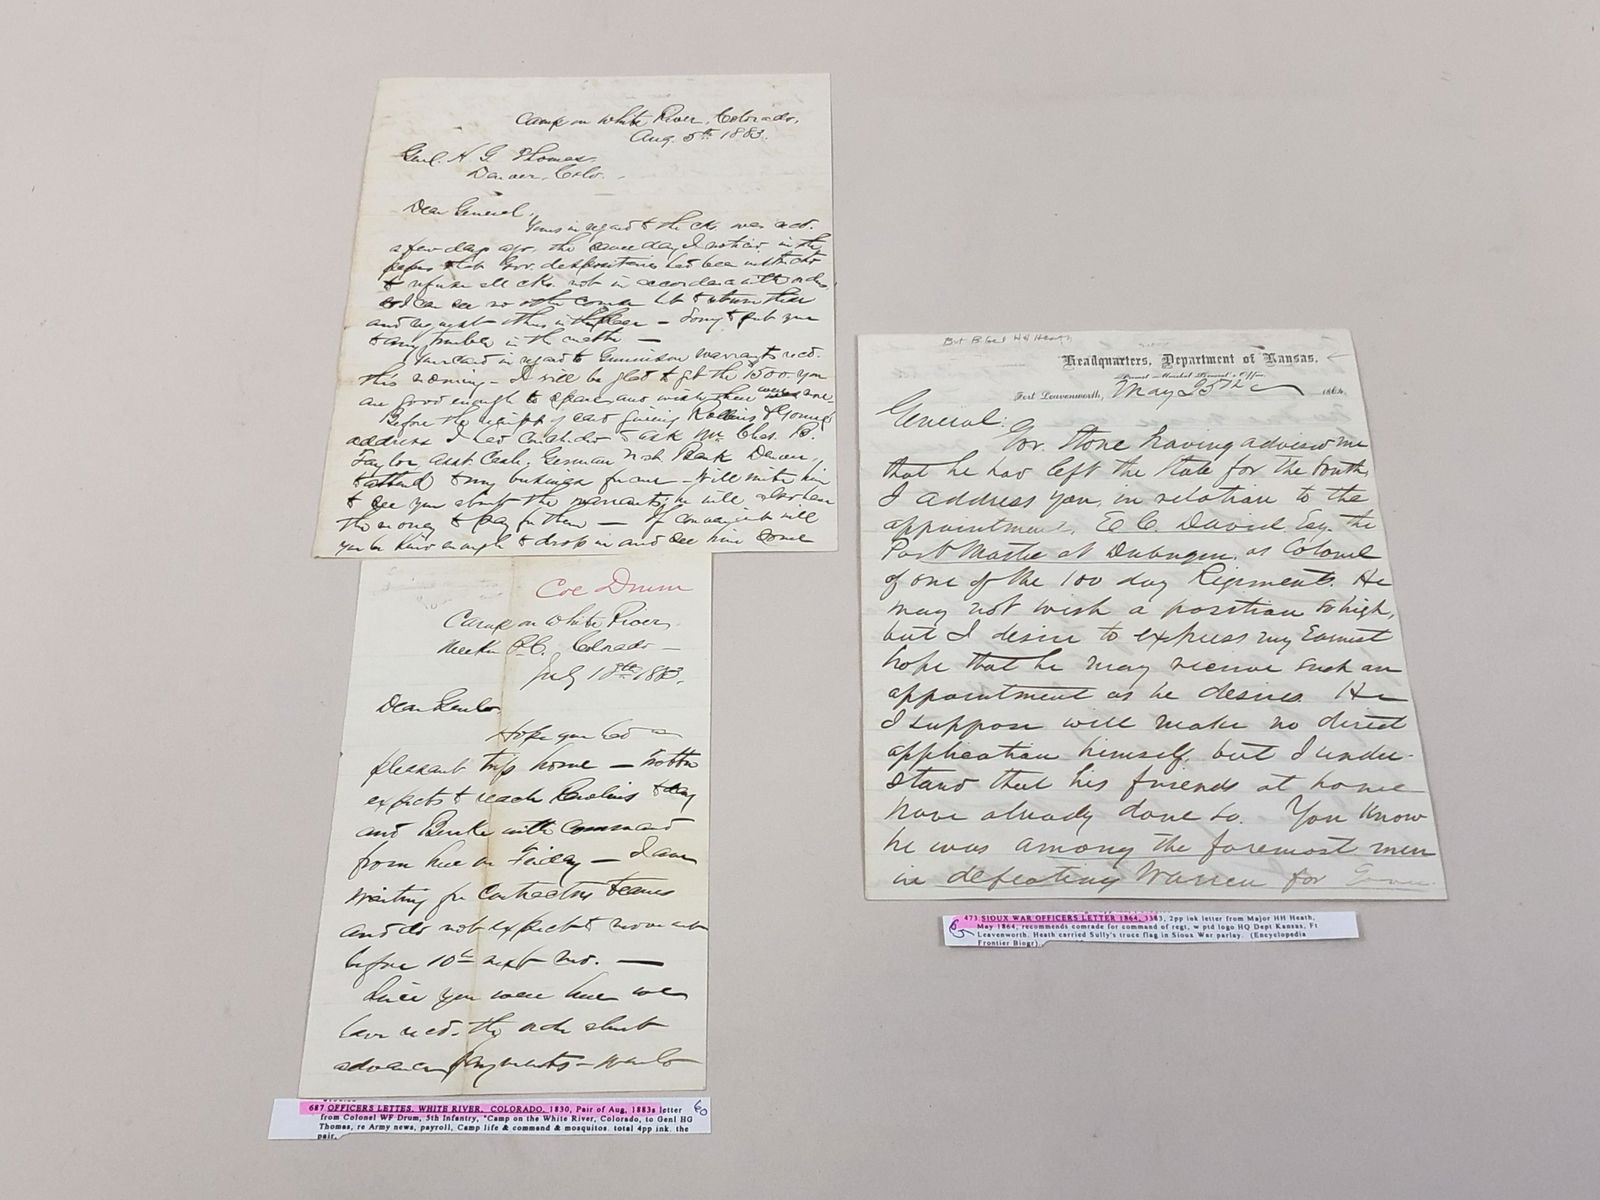 Camp on White River, Colorado,
Aug. 5th 1883.
Genl. H G Thomas
Denver, Colo.
Dear General,
Yours in regard to the cks was recd.
a few days ago, the same day I noticed in the
papers that Gov. depositories had been instructed
to refuse all cks. not in accordance with orders
so I can see no other course but to return them
and request others in their place – Sorry to put you
to any trouble in the matter –
Your card in regard to Gunnison warrants recd.
this morning – I will be glad to get the 1500. you
are good enough to spare and wish there were more
Before the receipt of card giving Rollins & Young
address I had concluded to ask Mr. Chas. B.
Taylor, asst. Cash. German Nat Bank Denver,
to attend to my business for me – Will write him
to see you about the warrants, he will also have
the money to pay for them – If convenient will
you be kind enough to drop in and see him some
Col Drum
Camp on White River,
Meeker P.O. Colorado –
July 18th 1883.
Dear Genl.
Hope you had a
pleasant trip home –
expects to reach Rawlins today
and Burke with command
from here on Friday – I am
waiting for Contractors teams
and do not expect to move out
before 10th next mo. –
Since you were here we
have recd. the order about
advance payments –
687 OFFICERS LETTES, WHITE RIVER, COLORADO, 1830, Pair of Aug, 1883s letter
from Colonel WF Drum, 5th Infantry, "Camp on the White River, Colorado, to Genl HG
Thomas, re Army news, payroll, Camp life & command & mosquitos. total 4pp ink. the
pair.
60
Bvt B Genl HH Heath
Headquarters, Department of Kansas.
Provost-Marshal General's Office.
Fort Leavenworth, May 25th 1864.
General:
Gov. Stone having advised me
that he had left the State for the South,
I address you, in relation to the
appointment, E C. David Esq. the
Post Master at Dubuque, as Colonel
of one of the 100 day Regiments. He
may not wish a position so high,
but I desire to express my earnest
hope that he may receive such an
appointment as he desires. He
I suppose will make no direct
application himself, but I under-
stand that his friends at home
have already done so. You know
he was among the foremost men
in defeating Warren for
473 SIOUX WAR OFFICERS LETTER 1864, 3383, 2pp ink letter from Major HH Heath,
May 1864, recommends comrade for command of regt, w ptd logo HQ Dept Kansas, Ft
Leavenworth. Heath carried Sully's truce flag in Sioux War parlay. (Encyclopedia
Frontier Biogr).
65